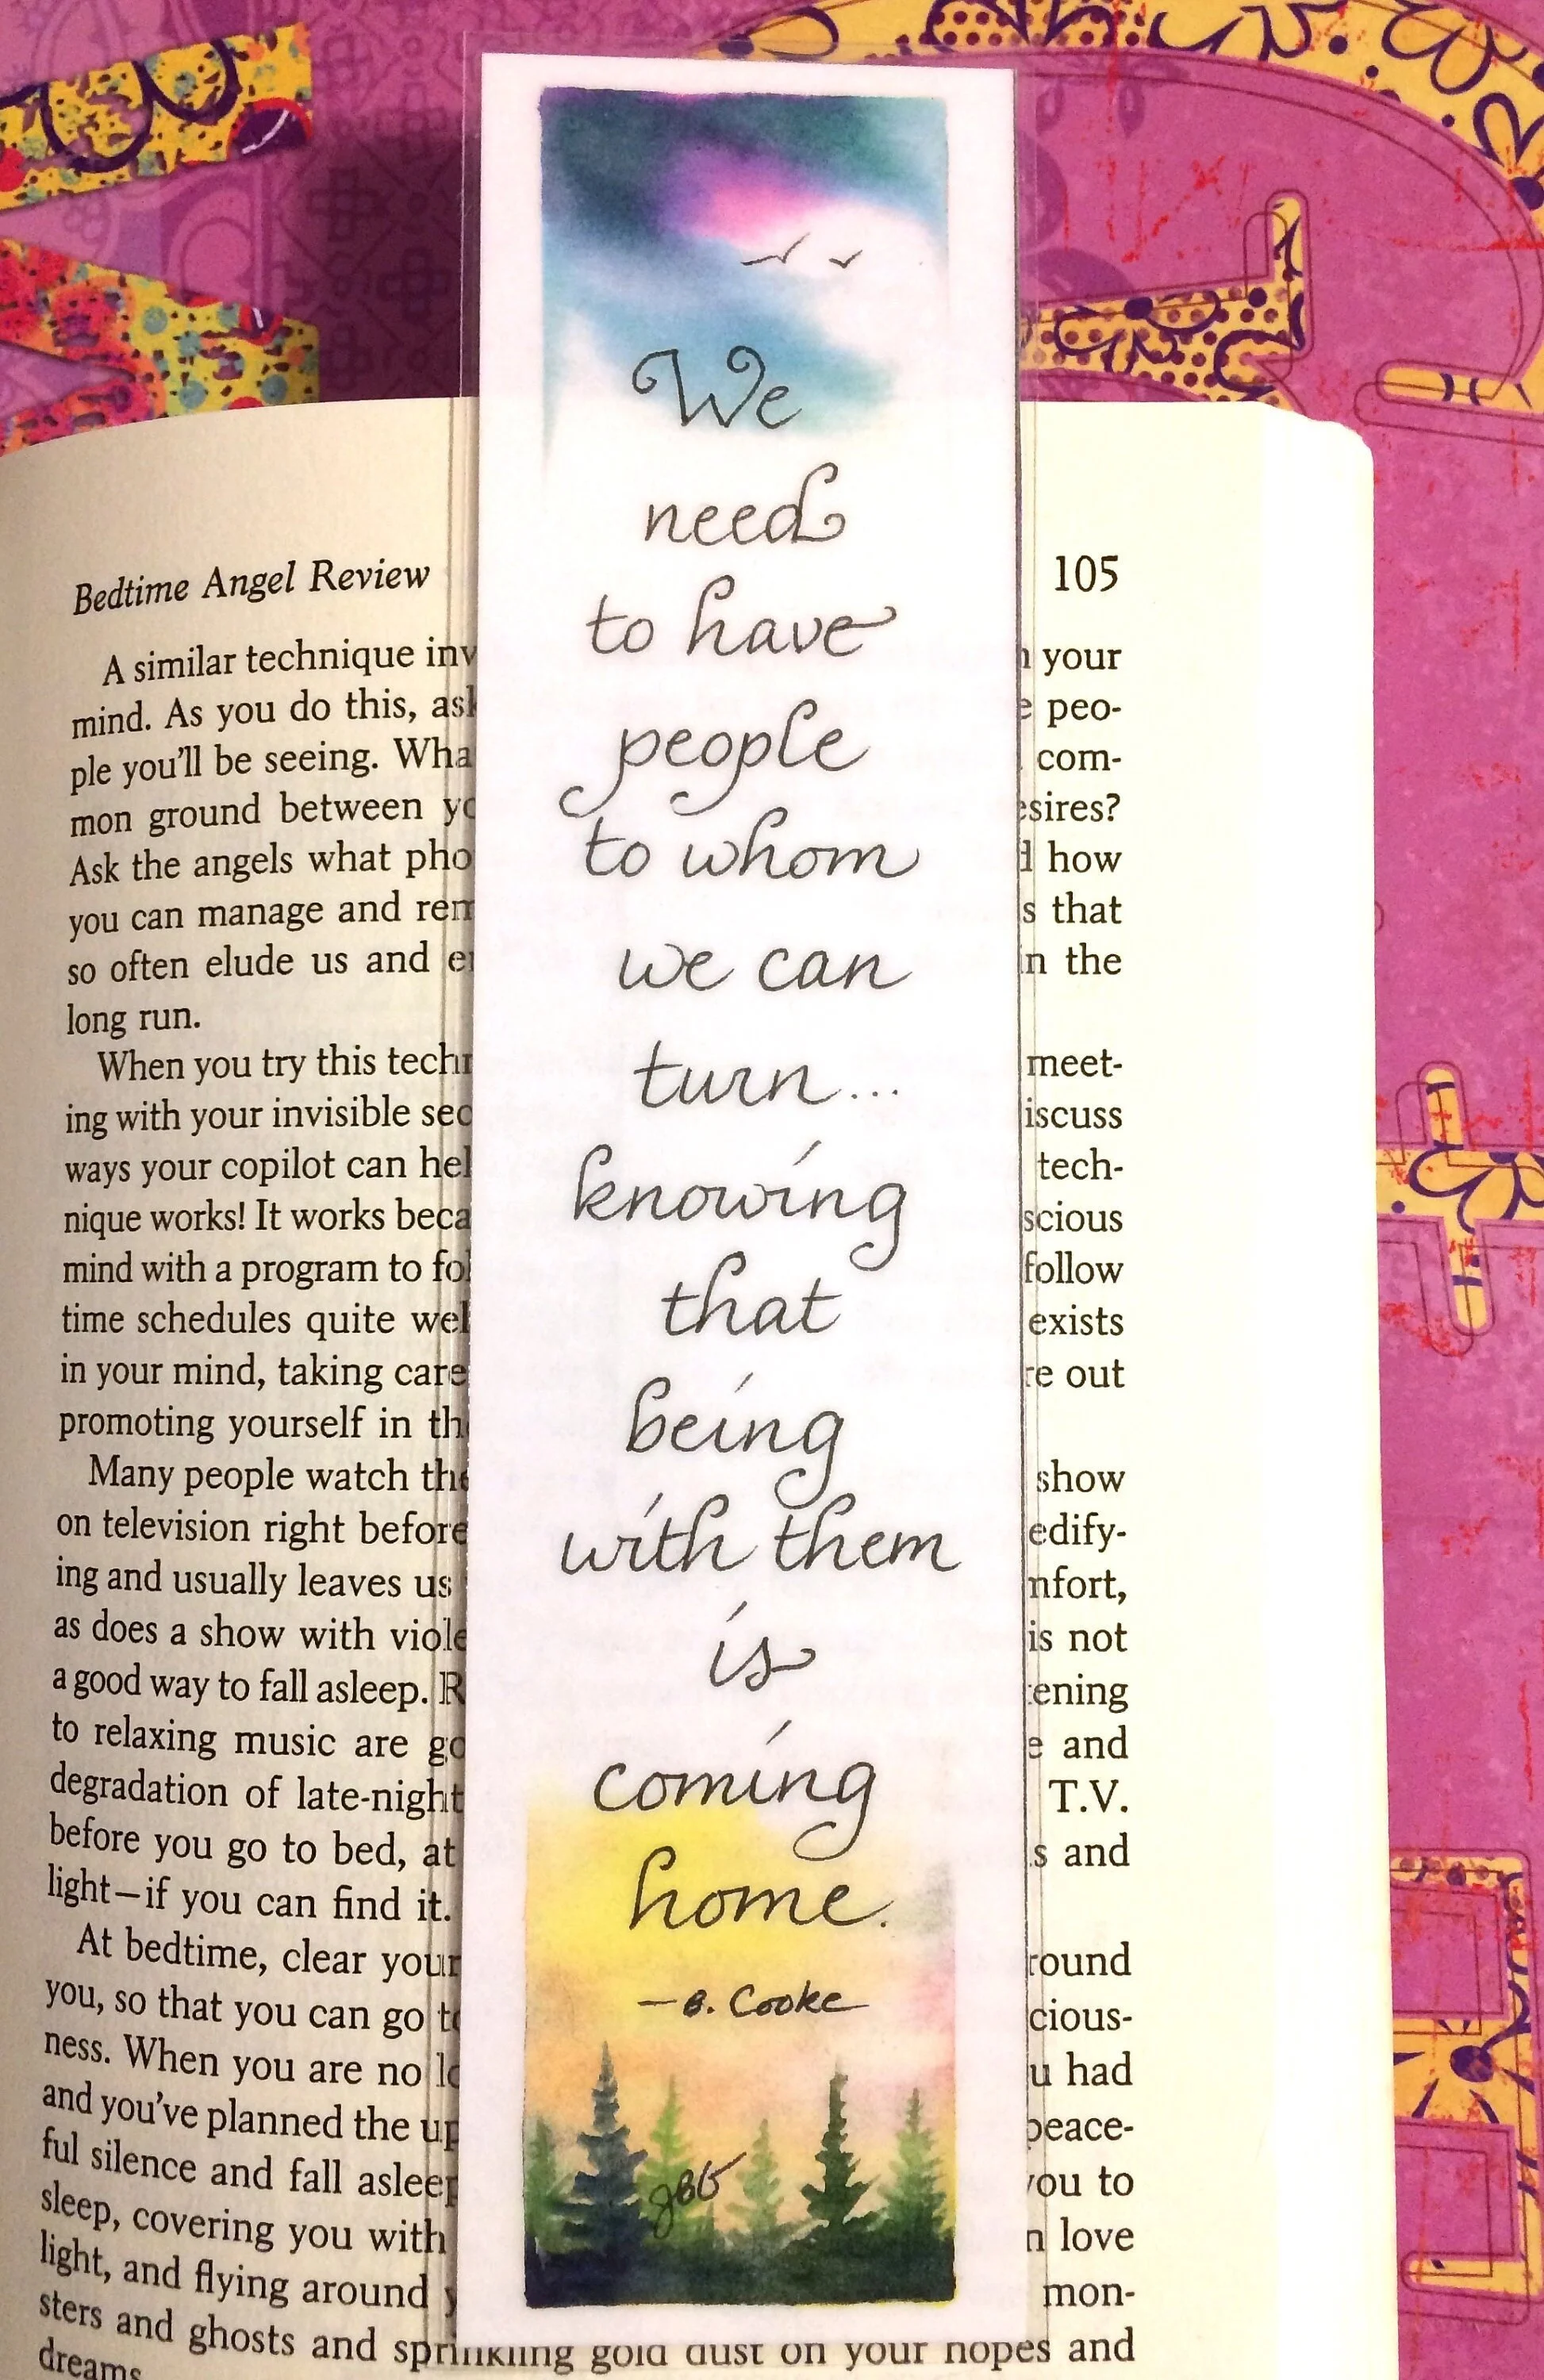 We
need
to have
people
to whom
we can
turn...
knowing
that
being
with them
is
coming
home.
—B. Cooke
JBG
Bedtime Angel Review 105
A similar technique inv your
mind. As you do this, ask peo-
ple you'll be seeing. Wha com-
mon ground between yo esires?
Ask the angels what pho how
you can manage and rem s that
so often elude us and e in the
long run.
When you try this techn meet-
ing with your invisible sec iscuss
ways your copilot can hel tech-
nique works! It works beca scious
mind with a program to fol follow
time schedules quite wel exists
in your mind, taking care re out
promoting yourself in th
Many people watch the show
on television right before edify-
ing and usually leaves us nfort,
as does a show with viole is not
a good way to fall asleep. R ening
to relaxing music are go e and
degradation of late-night T.V.
before you go to bed, at s and
light—if you can find it.
At bedtime, clear your round
you, so that you can go to cious-
ness. When you are no lo u had
and you've planned the up peace-
ful silence and fall asleep you to
sleep, covering you with n love
light, and flying around y mon-
sters and ghosts and sprinkling gold dust on your hopes and
dreams